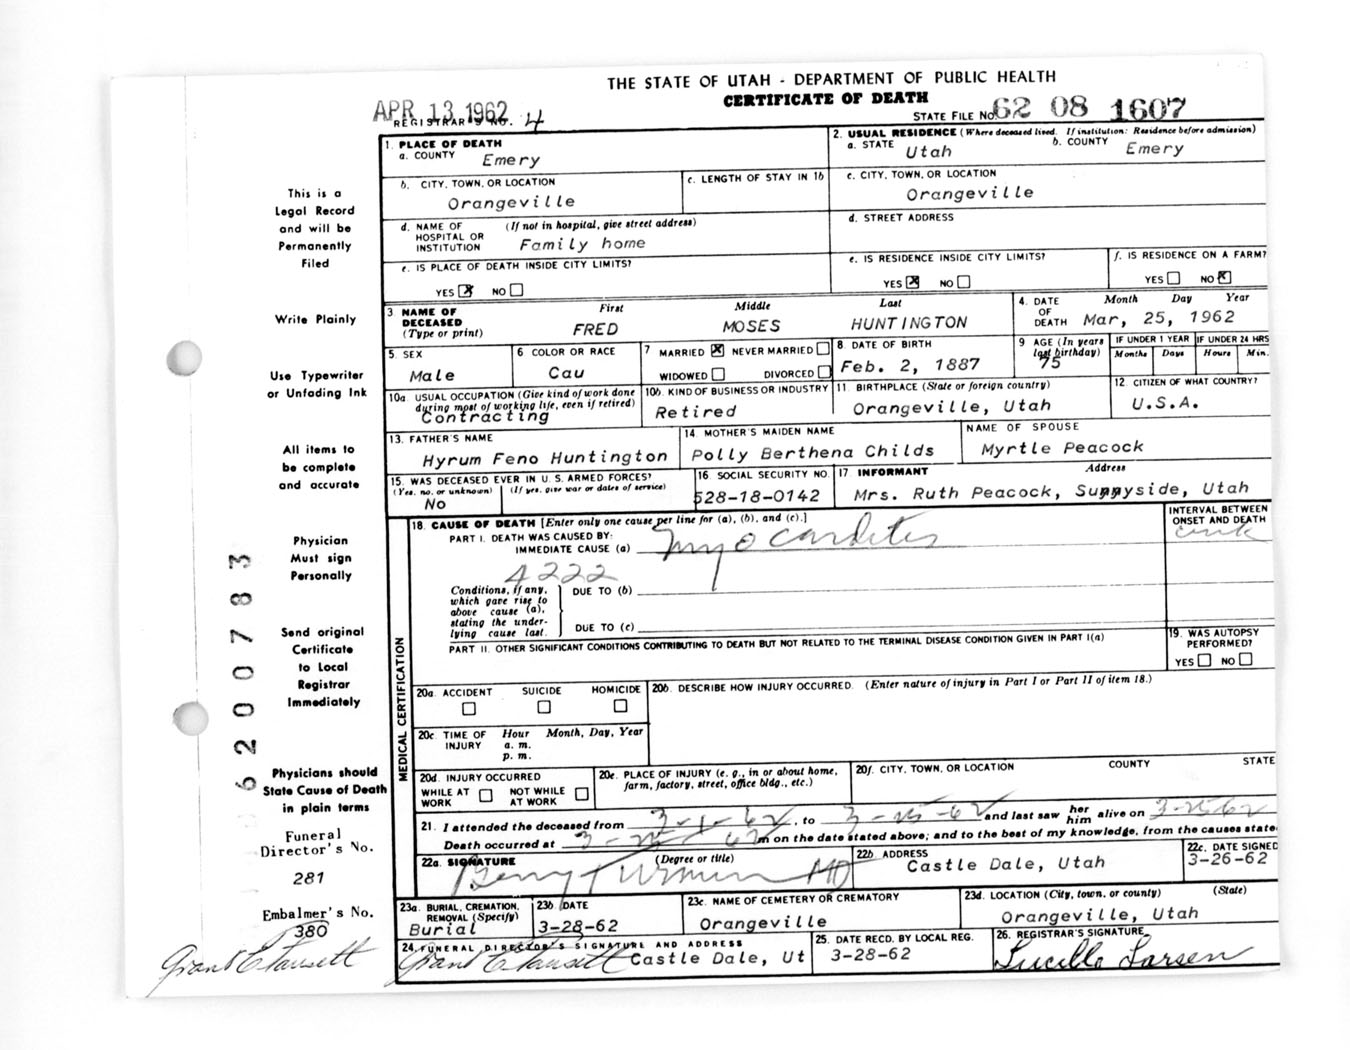 THE STATE OF UTAH - DEPARTMENT OF PUBLIC HEALTH
CERTIFICATE OF DEATH
APR 13 1962
REGISTRAR'S NO. 4
STATE FILE NO. 62 08 1607
This is a
Legal Record
and will be
Permanently
Filed
Write Plainly
Use Typewriter
or Unfading Ink
All items to
be complete
and accurate
Physician
Must sign
Personally
Send original
Certificate
to Local
Registrar
Immediately
Physicians should
State Cause of Death
in plain terms
Funeral
Director's No.
281
Embalmer's No.
380
Grant C Fausett
6200783
1. PLACE OF DEATH
a. COUNTY Emery
2. USUAL RESIDENCE (Where deceased lived. If institution: Residence before admission)
a. STATE Utah b. COUNTY Emery
b. CITY, TOWN, OR LOCATION
Orangeville
c. LENGTH OF STAY IN 1b
c. CITY, TOWN, OR LOCATION
Orangeville
d. NAME OF HOSPITAL OR INSTITUTION (If not in hospital, give street address)
Family home
d. STREET ADDRESS
e. IS PLACE OF DEATH INSIDE CITY LIMITS?
YES X NO
e. IS RESIDENCE INSIDE CITY LIMITS?
YES X NO
f. IS RESIDENCE ON A FARM?
YES NO X
3. NAME OF DECEASED (Type or print)
First Middle Last
FRED MOSES HUNTINGTON
4. DATE OF DEATH Month Day Year
Mar, 25, 1962
5. SEX
Male
6 COLOR OR RACE
Cau
7 MARRIED X NEVER MARRIED
WIDOWED DIVORCED
8 DATE OF BIRTH
Feb. 2, 1887
9 AGE (In years last birthday)
75
IF UNDER 1 YEAR IF UNDER 24 HRS
Months Days Hours Min.
10a. USUAL OCCUPATION (Give kind of work done during most of working life, even if retired)
Contracting
10b. KIND OF BUSINESS OR INDUSTRY
Retired
11. BIRTHPLACE (State or foreign country)
Orangeville, Utah
12. CITIZEN OF WHAT COUNTRY?
U.S.A.
13. FATHER'S NAME
Hyrum Feno Huntington
14. MOTHER'S MAIDEN NAME
Polly Berthena Childs
NAME OF SPOUSE
Myrtle Peacock
15. WAS DECEASED EVER IN U.S. ARMED FORCES?
(Yes, no, or unknown) (If yes, give war or dates of service)
No
16. SOCIAL SECURITY NO.
528-18-0142
17. INFORMANT Address
Mrs. Ruth Peacock, Sunnyside, Utah
MEDICAL CERTIFICATION
18. CAUSE OF DEATH [Enter only one cause per line for (a), (b), and (c).]
PART I. DEATH WAS CAUSED BY:
IMMEDIATE CAUSE (a) Myocarditis
INTERVAL BETWEEN ONSET AND DEATH
4222
Conditions, if any, which gave rise to above cause (a), stating the underlying cause last.
DUE TO (b)
DUE TO (c)
PART II. OTHER SIGNIFICANT CONDITIONS CONTRIBUTING TO DEATH BUT NOT RELATED TO THE TERMINAL DISEASE CONDITION GIVEN IN PART I(a)
19. WAS AUTOPSY PERFORMED?
YES NO
20a. ACCIDENT SUICIDE HOMICIDE
20b. DESCRIBE HOW INJURY OCCURRED. (Enter nature of injury in Part I or Part II of item 18.)
20c. TIME OF INJURY Hour Month, Day, Year
a. m.
p. m.
20d. INJURY OCCURRED
WHILE AT WORK NOT WHILE AT WORK
20e. PLACE OF INJURY (e. g., in or about home, farm, factory, street, office bldg., etc.)
20f. CITY, TOWN, OR LOCATION COUNTY STATE
21. I attended the deceased from 3-1-62, to 3-25-62 and last saw her him alive on 3-25-62
Death occurred at 3-25-62 m on the date stated above; and to the best of my knowledge, from the causes state
22a. SIGNATURE (Degree or title)
MD
22b. ADDRESS
Castle Dale, Utah
22c. DATE SIGNED
3-26-62
23a. BURIAL, CREMATION, REMOVAL (Specify)
Burial
23b. DATE
3-28-62
23c. NAME OF CEMETERY OR CREMATORY
Orangeville
23d. LOCATION (City, town, or county) (State)
Orangeville, Utah
24. FUNERAL DIRECTOR'S SIGNATURE AND ADDRESS
Grant C Fausett Castle Dale, Ut
25. DATE RECD. BY LOCAL REG.
3-28-62
26. REGISTRAR'S SIGNATURE
Lucille Larsen